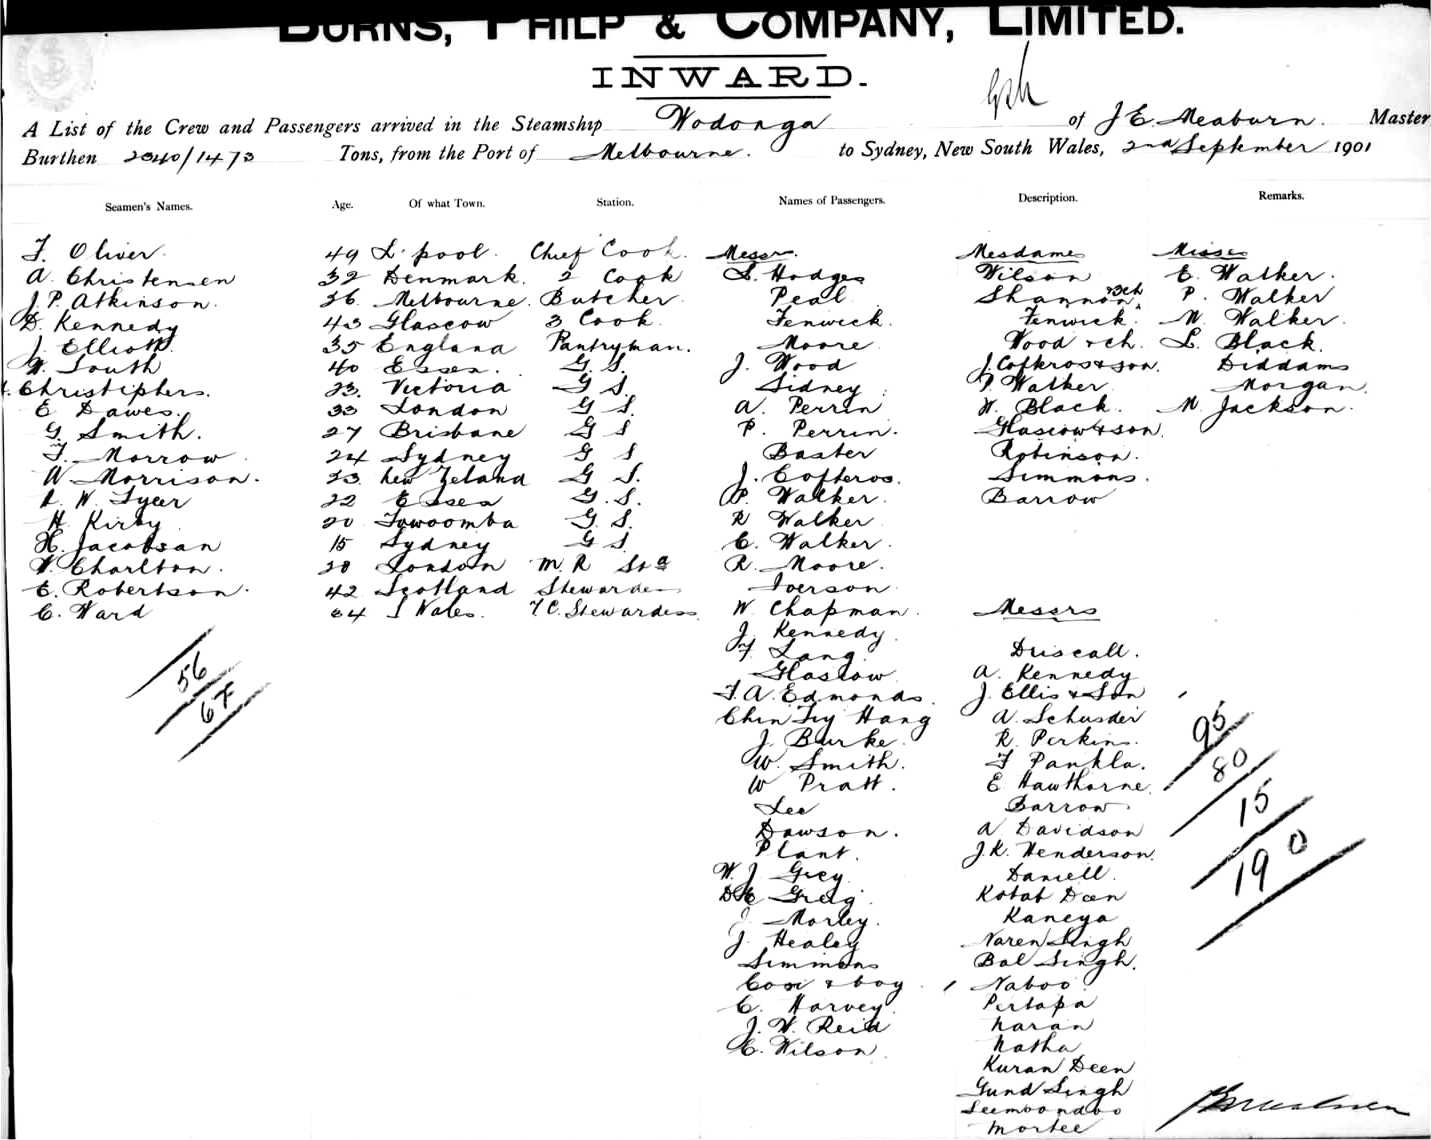 BURNS, PHILP & COMPANY, LIMITED.
INWARD.
A List of the Crew and Passengers arrived in the Steamship Wodonga of J E Meaburn. Master
Burthen 2340/1473 Tons, from the Port of Melbourne. to Sydney, New South Wales, 2nd September 1901
Seamen's Names. Age. Of what Town. Station. Names of Passengers. Description. Remarks.
F. Oliver. 49 L'pool. Chief Cook. Messrs. Mesdames Misses
A. Christensen 32 Denmark. 2 Cook L. Hodges Wilson E. Walker.
J. P. Atkinson. 26. Melbourne. Butcher. Peal Shannon & 3ch P. Walker
D. Kennedy 43 Glascow 3 Cook. Fenwick. Fenwick. M. Walker.
J. Elliott. 35 England Pantryman. Moore. Wood & ch. L. Black.
W. South 40 Essex. G. S. J. Wood J. Cofkros & son. Diddams
Christiphers. 23. Victoria G S. Sidney P. Walker Morgan.
E. Dawes. 33 London G S. A. Perrin H. Black. M. Jackson.
G. Smith. 27 Brisbane G S P. Perrin. Glascow & son.
F. Morrow. 24 Sydney G S Baxter Robinson.
W. Morrison. 23. New Zeland G S. J. Cofteros. Simmons.
A. W. Tyler 22 Essex G. S. P. Walker. Barrow
H. Kirby 20 Towoomba G. S. R Walker
H. Jacobsan 15 Sydney G S C. Walker.
W. Charlton. 28 London M. R Std R. Moore.
E. Robertson. 42 Scotland Stewardess Iverson.
C. Ward 34 S Wales. T.C. Stewardess W. Chapman. Messrs
J. Kennedy.
F. Lang. Driscall.
Glascow A. Kennedy
56 F. A. Edmonds. J. Ellis & Son
67 Chin Try Hang A. Schusder
J. Burke. R. Perkins. 95
W. Smith. F Pankla. 80
W Pratt. E Hawthorne.
Lee Barrow. 15
Dawson. A Davidson
Plant. J. K. Henderson. 190
W. J. Grey Daniell.
D E Greig. Kotab Deen
J. Morley. Kaneya
J. Healey Naren Singh
Simmons Bal Singh.
Coxe & boy. Naboo
C. Harvey. Pertapa
J. W. Reid Naran
C. Wilson. Natha
Kuran Deen
Gund Singh
Seemboondoo
Mortee